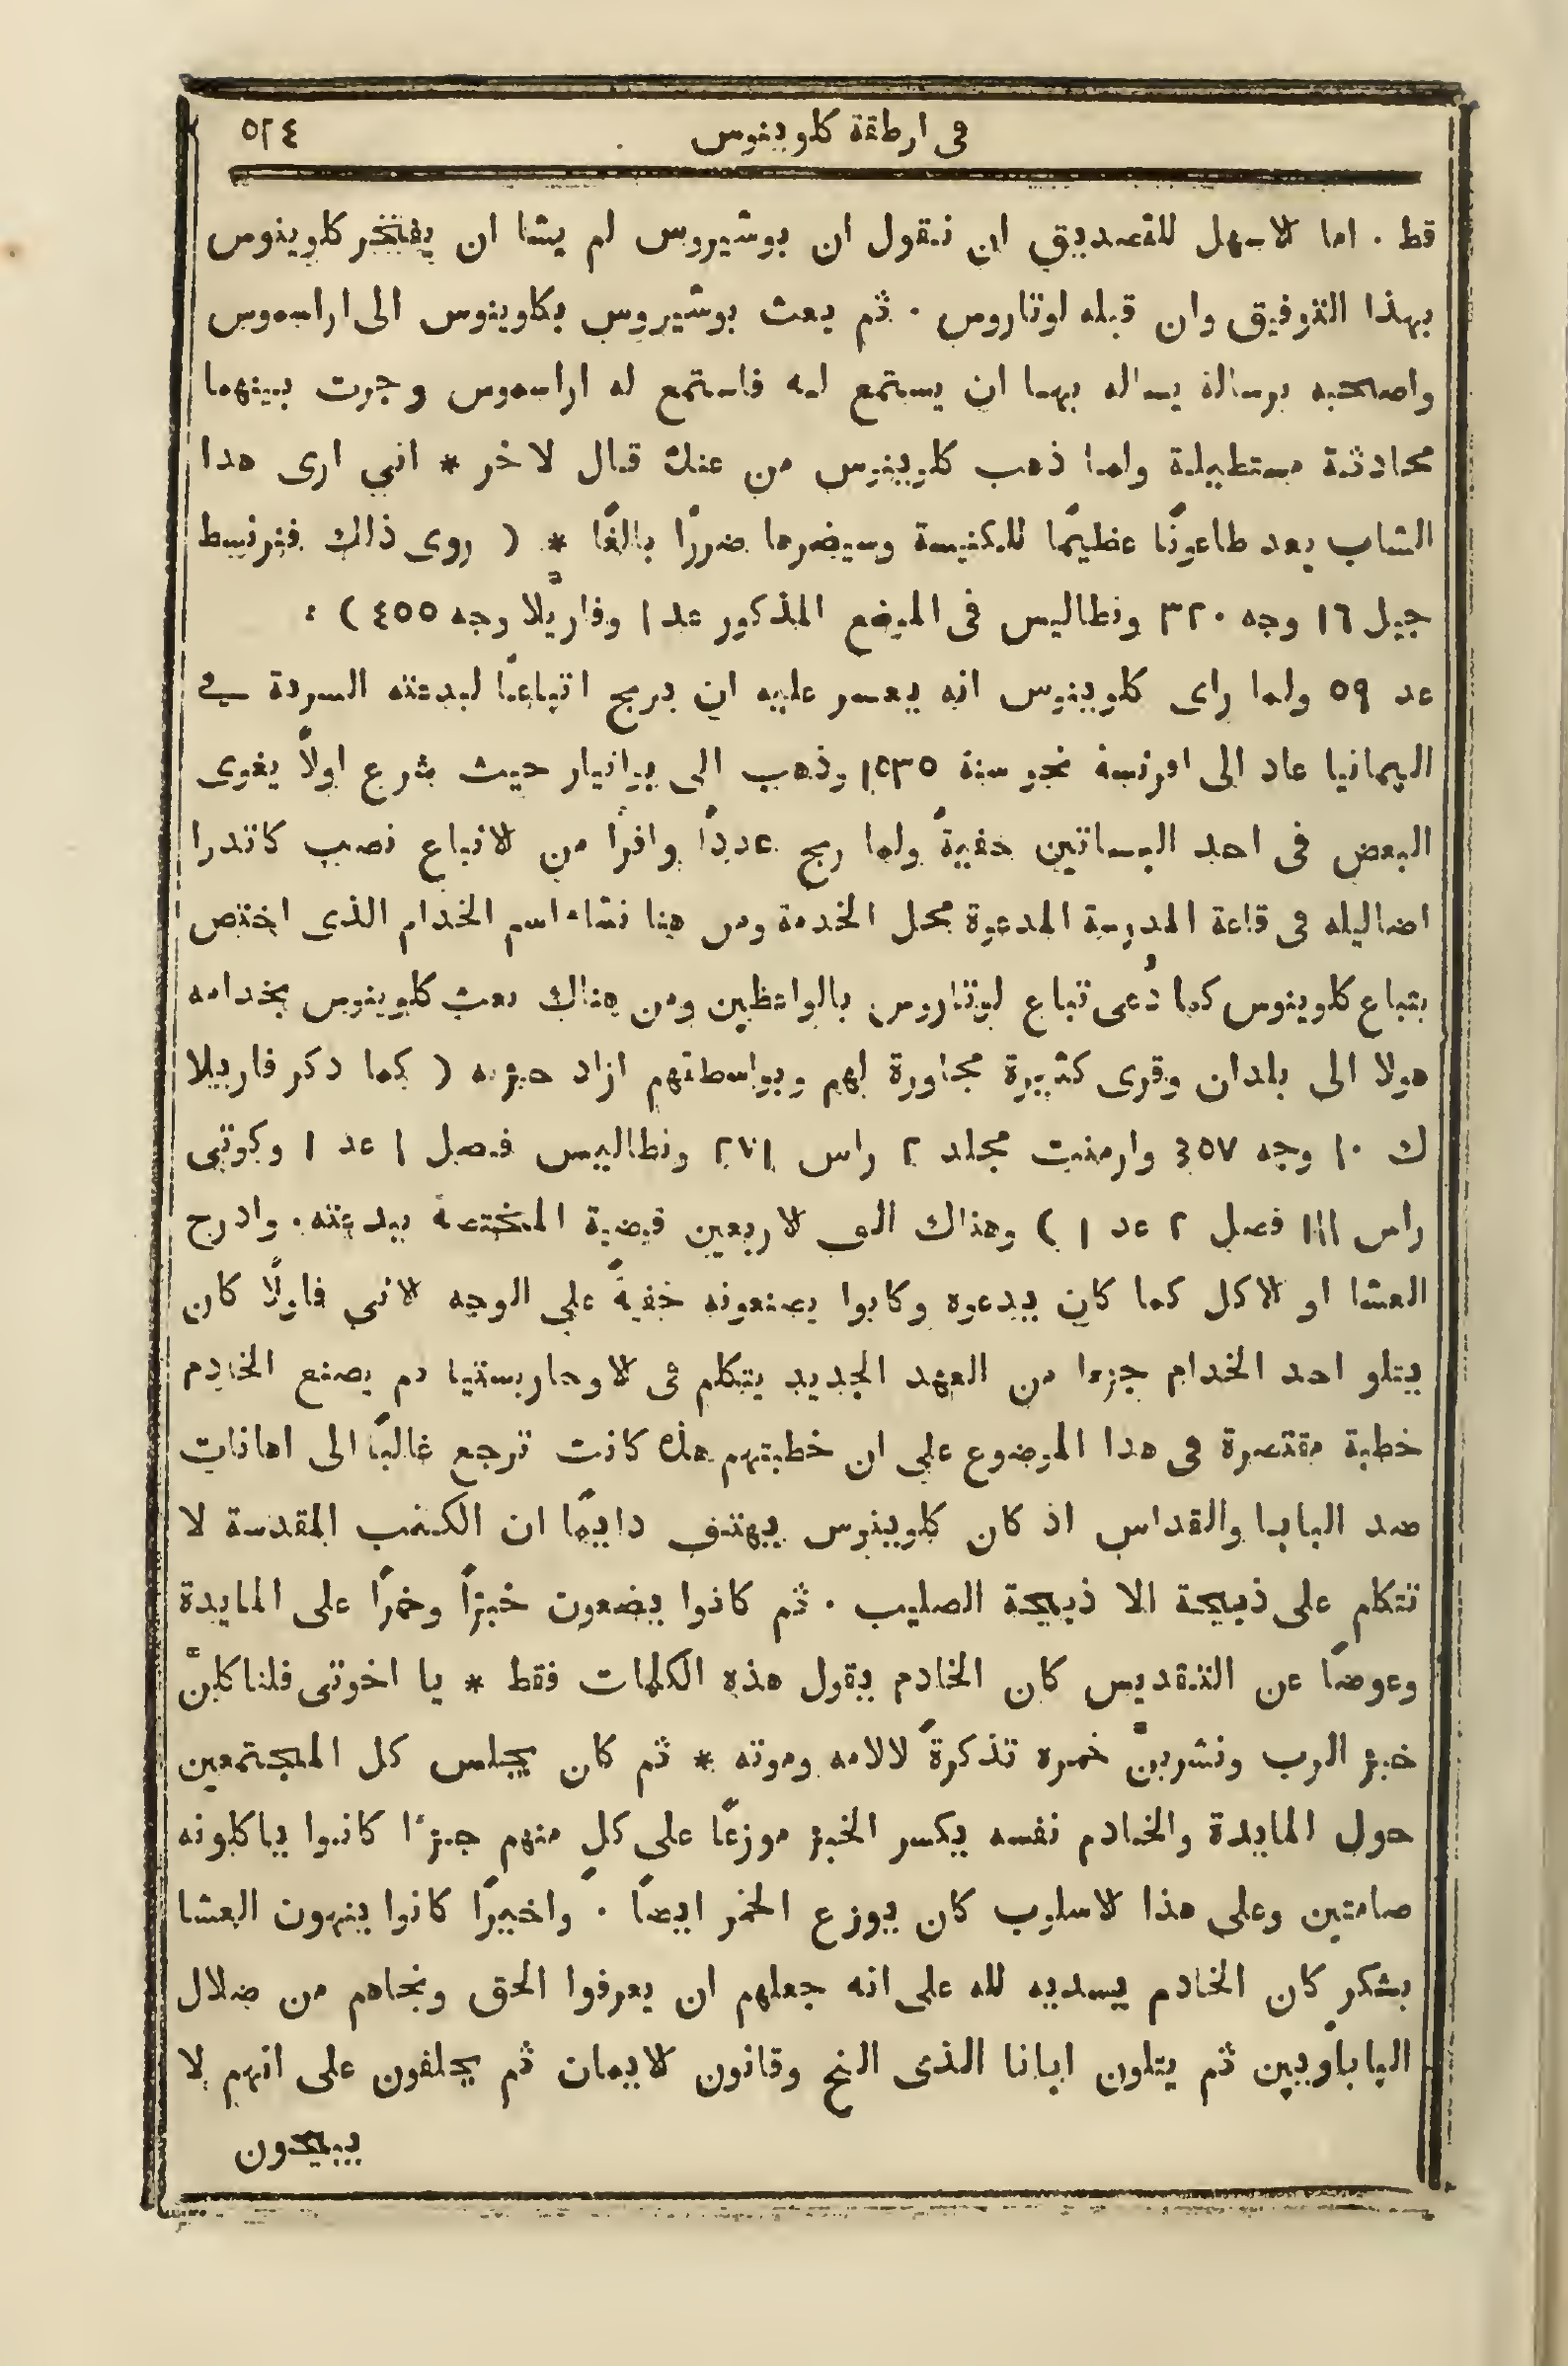 فى ارطقة كلوينوس ٥٢٤
قط . اما لاسهل للتصديق ان نقول ان بوشيروس لم يشا ان يفتخر كلوينوس
بهذا التوفيق وان قبله لوتاروس . ثم بعث بوشيروس بكلوينوس الى اراسموس
واصحبه برسالة يساله بها ان يستمع له فاستمع له اراسموس وجرت بينهما
محادثة مستطيلة ولما ذهب كلوينوس من عنك قال لاخر * اني ارى هدا
الشاب يعد طاعونًا عظيمًا للكنيسة وسيضرها ضررًا بالغًا * ( روى ذلك فنرنيط
جيل ١٦ وجه ٣٢٠ ونطاليس فى الموضع المذكور عد ١ وفاريلّا وجه ٤٥٥ ) :
عد ٥٩ ولما راى كلوينوس انه يعسر عليه ان يربح اتباعًا لبدعته السردة في
اليمانيا عاد الى افرنسة نحو سنة ١٥٣٥ وذهب الى بواتيار حيث شرع اولًا يغوى
البعض فى احد البساتين خفيةً ولما ربح عددًا وافرًا من لاتباع نصب كاتدرا
اضاليله فى قاعة المدرسة المدعوة محل الخدمة ومن هنا نشاء اسم الخدام الذى اختص
بتباع كلوينوس كما دُعى تباع لوتاروس بالواعظين ومن هناك بعث كلوينوس بخدامه
هولا الى بلدان وقرى كثيرة مجاورة لهم وبواسطتهم ازاد حزبه ( كما دكر فاريلا
ك ١٠ وجه ٤٥٧ وارمنت مجلد ٢ راس ٢٧١ ونطاليس فصل ١ عد ١ وكوتى
راس ١١١ فصل ٢ عد ١ ) وهناك الف لاربعين قضية المختصة ببدعته . وادرج
العشا او لاكل كما كان يدعوه وكانوا يصنعونه خفيةً على الوجه لاتى فاولًا كان
يتلو احد الخدام جزءا من العهد الجديد يتكلم فى لاوخاريستيا ثم يصنع الخادم
خطبة مقتصرة فى هدا الموضوع على ان خطبتهم هذه كانت ترجع غالبًا الى اهانات
ضد البابا والقداس اذ كان كلوينوس يهتف دايمًا ان الكتب المقدسة لا
تتكلم على ذبيحة الا ذبيحة الصليب . ثم كانوا يضعون خبزًا وخمرًا على المايدة
وعوضًا عن التقديس كان الخادم يقول هذه الكلمات فقط * يا اخوتى فلناكلنَّ
خبز الرب ونشربنَّ خمره تذكرةً لالامه وموته * ثم كان يجلس كل المجتمعين
حول المايدة والخادم نفسه يكسر الخبز موزعًا على كلٍ منهم جزءًا كانوا ياكلونه
صامتين وعلى هذا لاسلوب كان يوزع الخمر ايضًا . واخيرًا كانوا ينهون العشا
بشكرٍ كان الخادم يسديه لله على انه جعلهم ان يعرفوا الحق ونجاهم من ضلال
الباباويين ثم يتلون ابانا الذى الخ وقانون لايمان ثم يحلفون على انهم لا
يبيحون